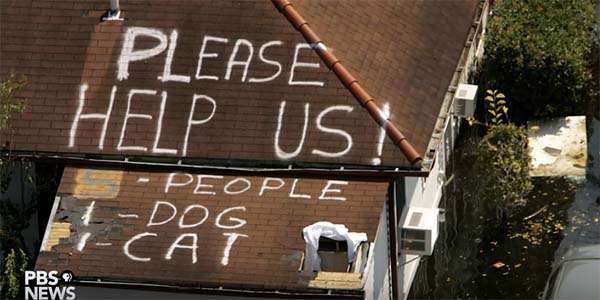 PLEASE
HELP US!
- PEOPLE
1 - DOG
1 - CAT
PBS
NEWS